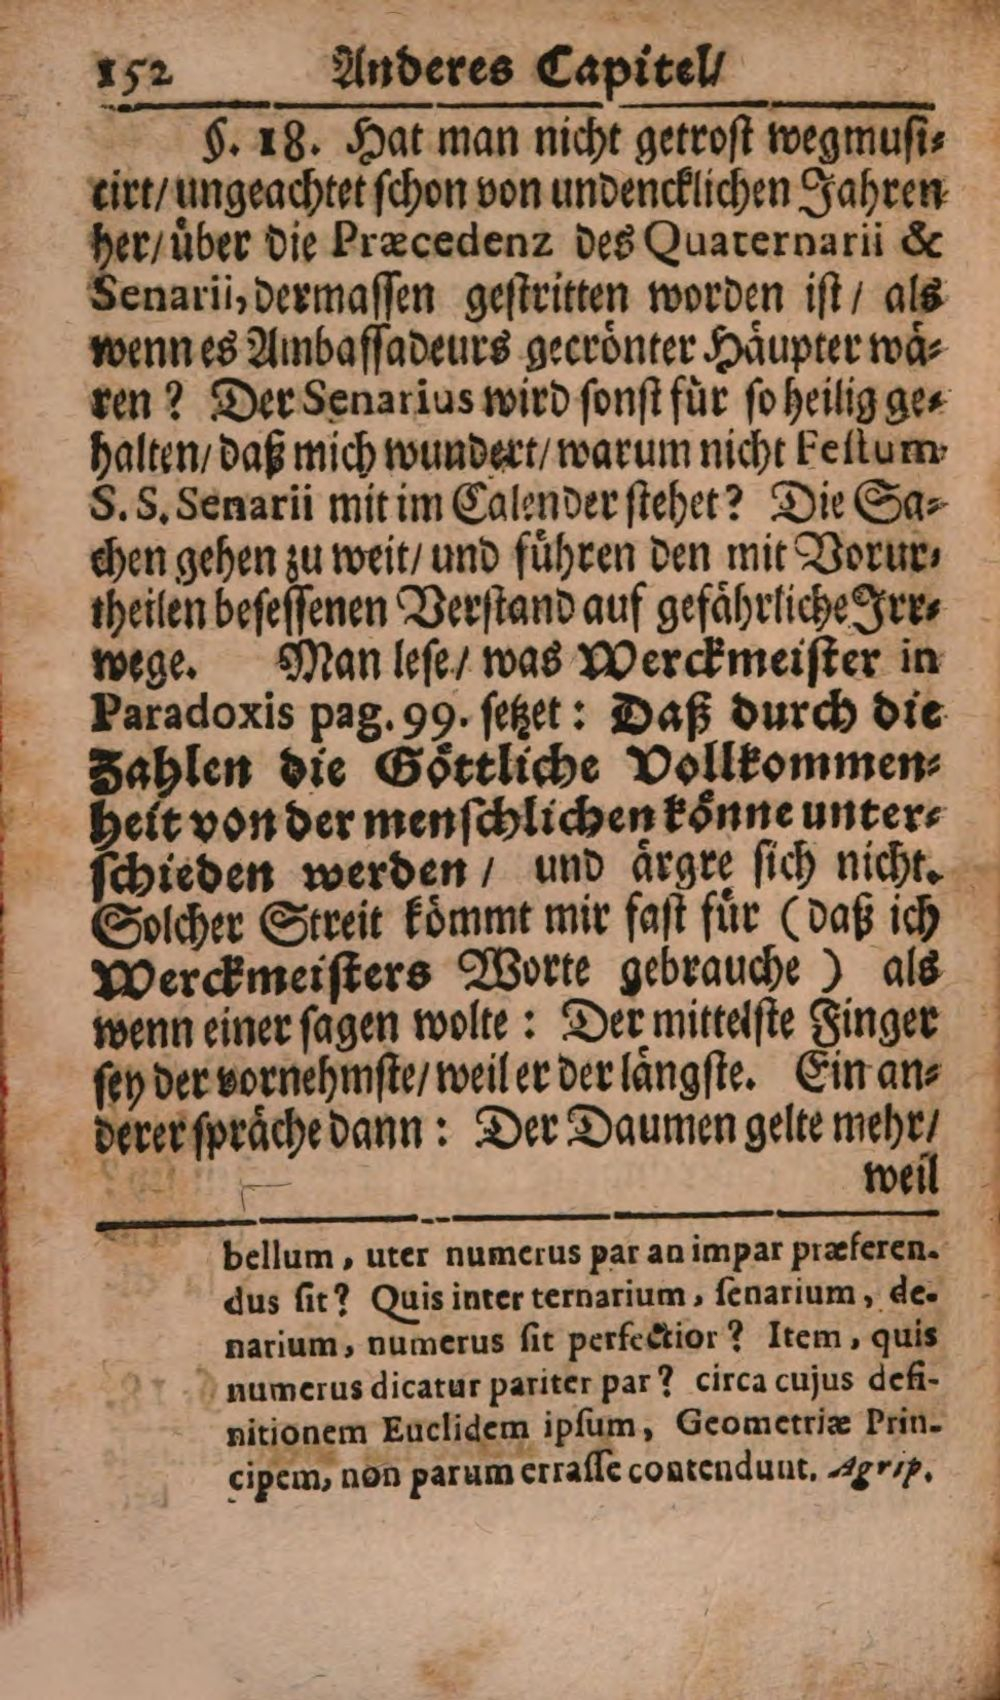 152 Anderes Capitel/
§. 18. Hat man nicht getrost wegmusi-
cirt/ ungeachtet schon von undencklichen Jahren
her/ über die Præcedenz des Quaternarii &
Senarii, dermassen gestritten worden ist / als
wenn es Ambassadeurs gecrönter Häupter wä-
ren ? Der Senarius wird sonst für so heilig ge-
halten/ daß mich wundert/ warum nicht Festum
S. S. Senarii mit im Calender stehet? Die Sa-
chen gehen zu weit/ und führen den mit Vorur-
theilen besessenen Verstand auf gefährliche Irr-
wege. Man lese / was Werckmeister in
Paradoxis pag. 99. setzet : Daß durch die
Zahlen die Göttliche Vollkommen-
heit von der menschlichen könne unter-
schieden werden / und ärgre sich nicht.
Solcher Streit kömmt mir fast für ( daß ich
Werckmeisters Worte gebrauche ) als
wenn einer sagen wolte : Der mittelste Finger
sey der vornehmste/ weil er der längste. Ein an-
derer spräche dann : Der Daumen gelte mehr/
weil
bellum, uter numerus par an impar præferen-
dus sit? Quis inter ternarium, senarium, de-
narium, numerus sit perfectior? Item, quis
numerus dicatur pariter par? circa cujus defi-
nitionem Euclidem ipsum, Geometriæ Prin-
cipem, non parum errasse contendunt. Agrip.